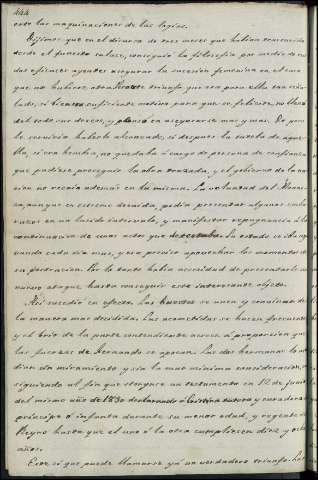 444
Dijimos que en el discurso de tres meses que habian transcurrido
desde el funesto enlace, consiguió la filosofia por medio de sus
dos eficaces ayudas asegurar la sucesion femenina en el caso
que no hubiera
suficiente motivo para que se felicite, no
del todo sus deseos, y pensó en asegurarse mas y mas. De poco
le serviria haberlo alcanzado, si despues la tutela de aque-
lla, si era hembra, no quedaba á cargo de persona de confianza
que pudiese proseguir la obra trazada, y el gobierno de la na-
cion no recaia ademas en la misma. La voluntad del Monar-
ca, aunque en estremo devaida, podia presentar algunos emba-
razos en un lucido intervalo, y manifestar repugnancia á la
continuacion de unos actos que detestaba. Su estado se iba agra-
vando cada dia mas, y era preciso aprovechar los momentos de
su postracion. Por lo tanto habia necesidad de presentarle un
nuevo ataque hasta conseguir este interesante objeto.
Asi sucedió en efecto. Las huestes se unen y convienen de
la manera mas decidida. Las acometidas se hacen frecuentes
y el brio de la parte contendiente acrece á proporcion que
las fuerzas de Fernando se apocan. Las dos hermanas
dian sin miramiento y sin la mas minima consideracion,
siguiendo al fin que otorgase un testamento en 12 de junio
del mismo año de 1830 declarando á Cristina tutora y curadora
principe ó infanta durante su menor edad, y regente del
Reyno hasta que el uno ó la otra cumpliesen diez y ocho
años.
Este si que puede llamarse yá un verdadero triunfo.